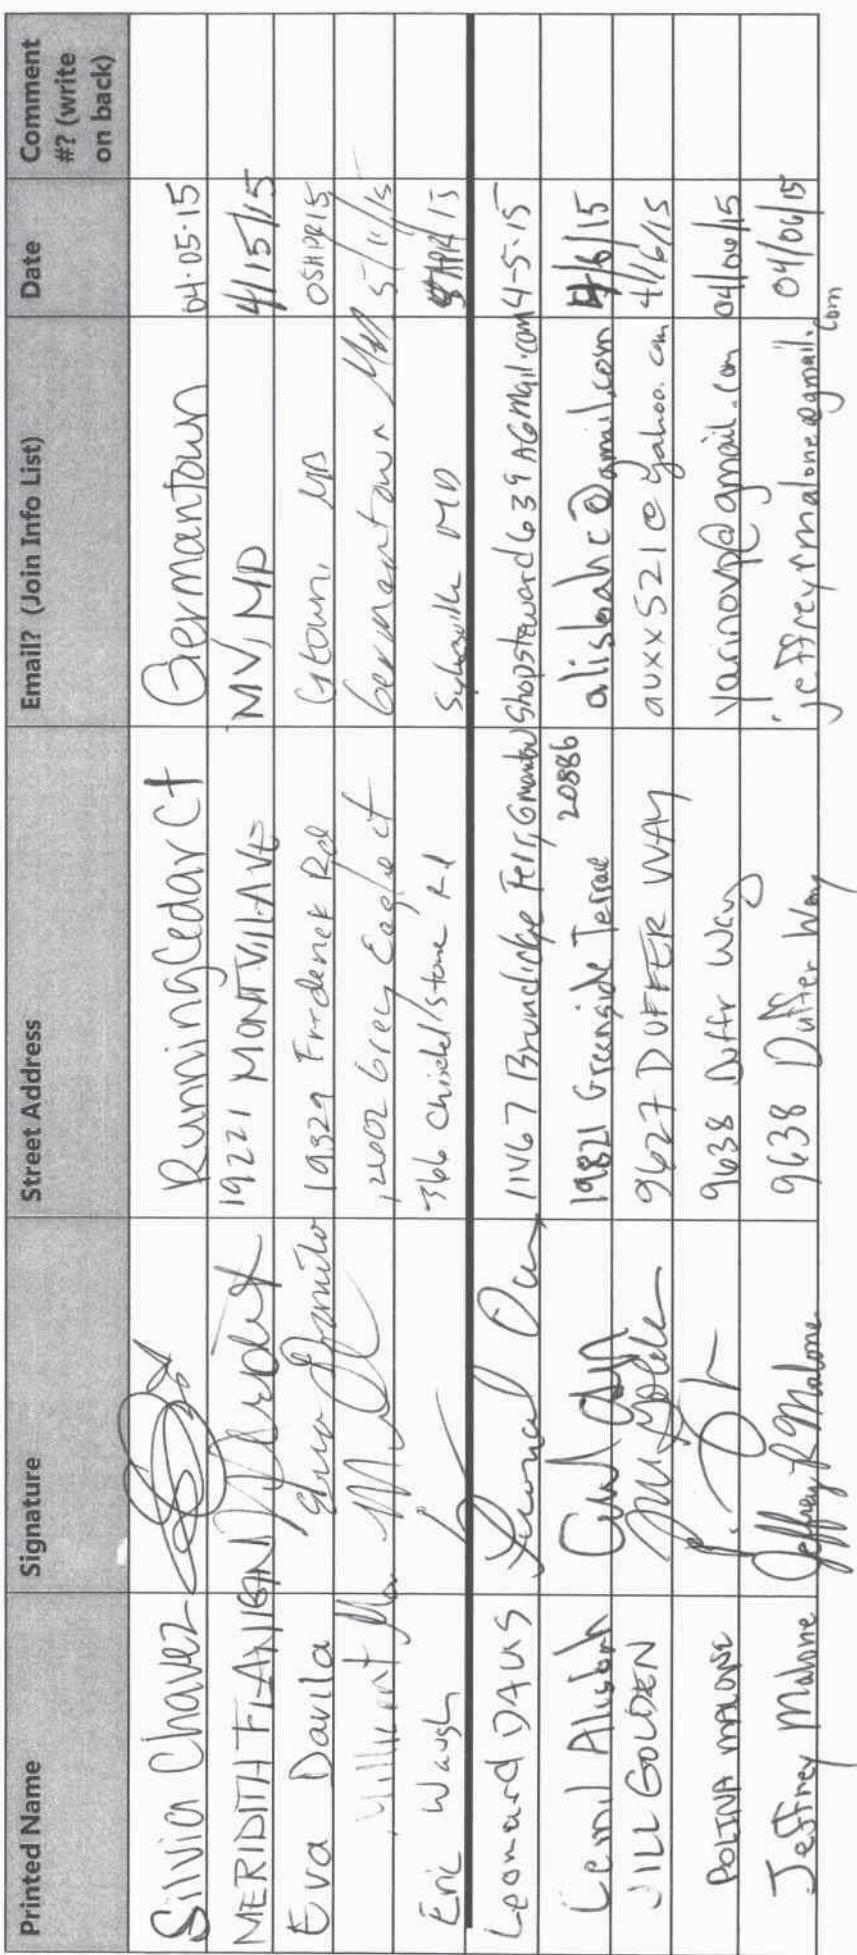 Printed Name Signature Street Address Email? (Join Info List) Date Comment #? (write on back)
Silvia Chavez Running Cedar Ct Germantown 04.05.15
MERIDITH 19221 MONT VILL AVE MV, MD 4/15/15
Eva Davila 19329 Frederick Rd Gtown, MD 05APR15
Millicent Grey Eagle ct Germantown Md
Eric Waugh 366 Rd MD APR 15
Leonard DAVIS 11467 Brundidge Terr, Gmantow Shopsteward639AGMail.com 4-5-15
19821 Greenside Terrae 20886 alisbahc@gmail.com 4/6/15
JILL GOLDEN 9627 DUFFER WAY auxx521@yahoo.com 4/6/15
POLINA MALONE 9638 Duffr Way Yarinovp@gmail.com 04/06/15
Jeffrey Malone Jeffrey R Malone 9638 Duffer Way jeffreyrmalone@gmail.com 04/06/15